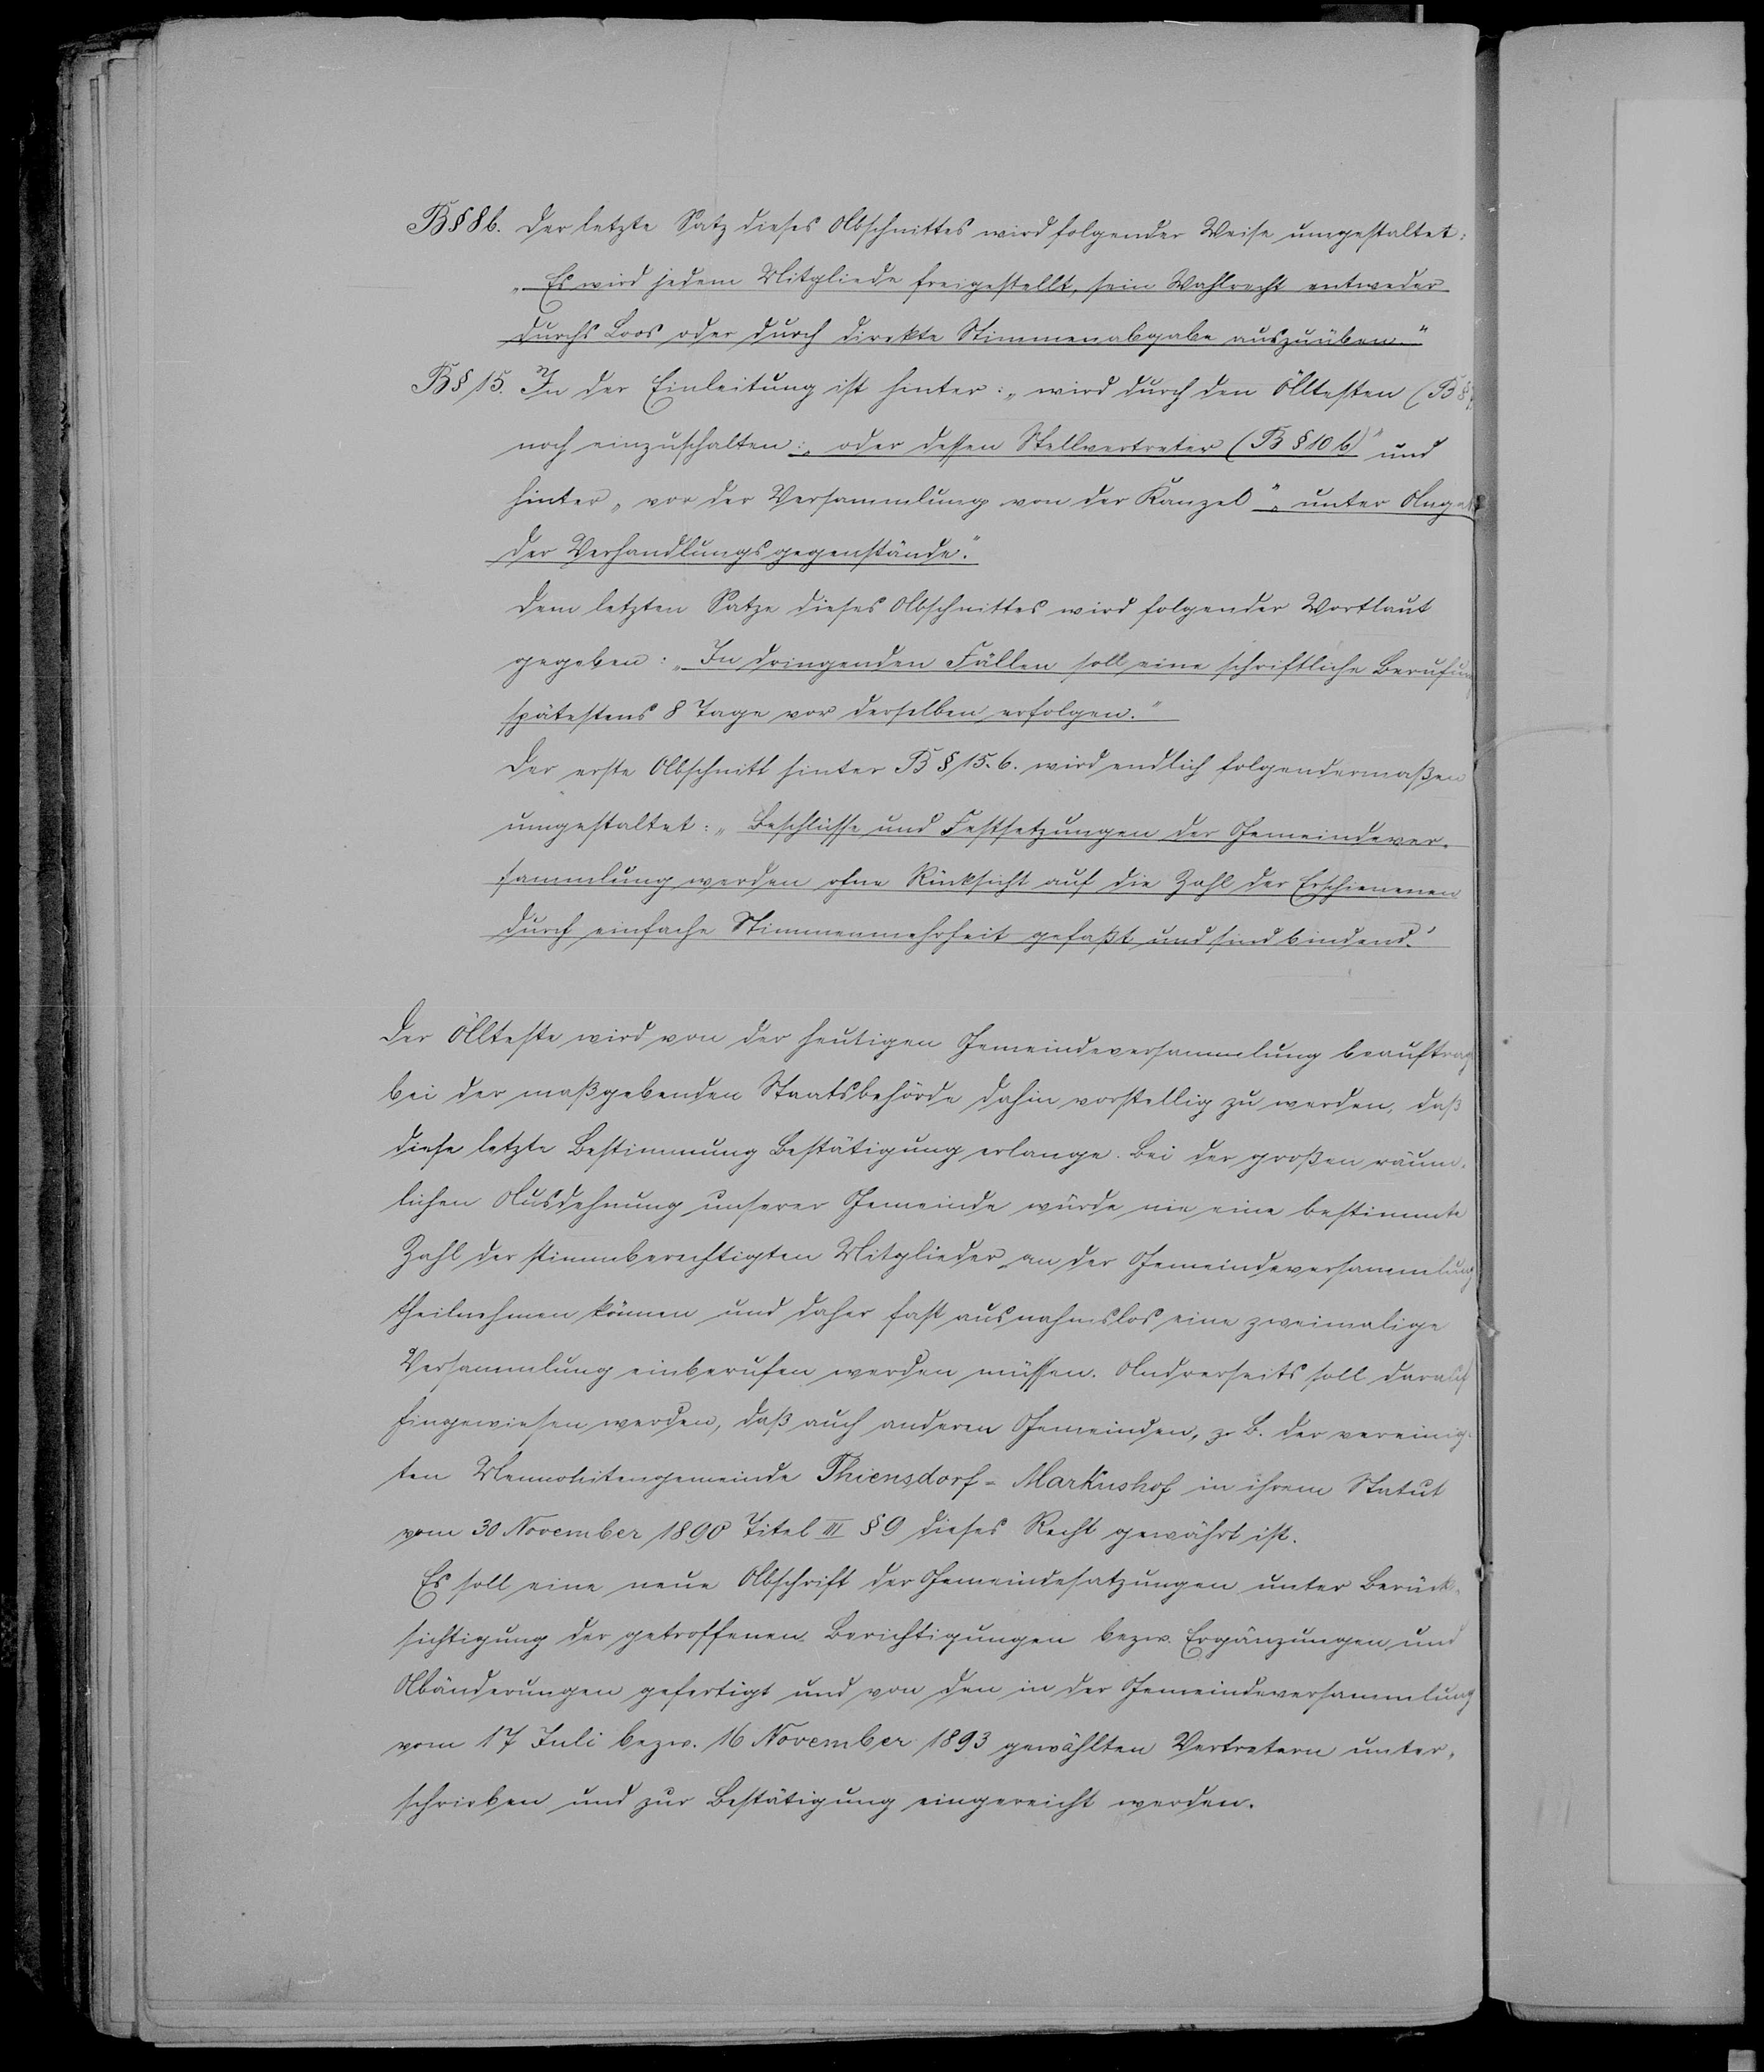 B § 8 b. Der letzte Satz dieses Abschnittes wird folgender Weise umgestaltet:
„Es wird jedem Mitgliede freigestellt, sein Wahlrecht entweder
durchs Loos oder durch direkte Stimmenabgabe auszuüben."
B § 15. In der Einleitung ist hinter: „wird durch den Ältesten (B §
noch einzuschalten: „oder dessen Stellvertreter (B § 10 b)" und
hinter „vor der Versammlung von der Kanzel" „unter Angabe
der Verhandlungsgegenstände."
Dem letzten Satze dieses Abschnittes wird folgender Wortlaut
gegeben: „In dringenden Fällen soll eine schriftliche Berufung
spätestens 8 Tage vor derselben erfolgen."
Der erste Abschnitt hinter B § 15. 6. wird endlich folgendermaßen
umgestaltet: „Beschlüsse und Festsetzungen der Gemeindever-
sammlung werden ohne Rücksicht auf die Zahl der Erschienenen
durch einfache Stimmenmehrheit gefaßt und sind bindend."
Der Älteste wird von der heutigen Gemeindeversammlung beauftragt
bei der maßgebenden Staatsbehörde dahin vorstellig zu werden, daß
diese letzte Bestimmung Bestätigung erlange. Bei der großen räum-
lichen Ausdehnung unserer Gemeinde würde nie eine bestimmte
Zahl der stimmberechtigten Mitglieder an der Gemeindeversammlung
theilnehmen können und daher fast ausnahmslos eine zweimalige
Versammlung einberufen werden müssen. Andrerseits soll darauf
hingewiesen werden, daß auch anderen Gemeinden, z. B. der vereinig-
ten Mennonitengemeinde Thiensdorf-Markushof in ihrem Statut
vom 30 November 1890 Titel III § 9 dieses Recht gewährt ist.
Es soll eine neue Abschrift der Gemeindesatzungen unter Berück-
sichtigung der getroffenen Berichtigungen bezw. Ergänzungen und
Abänderungen gefertigt und von den in der Gemeindeversammlung
vom 17 Juli bezw. 16 November 1893 gewählten Vertretern unter-
schrieben und zur Bestätigung eingereicht werden.